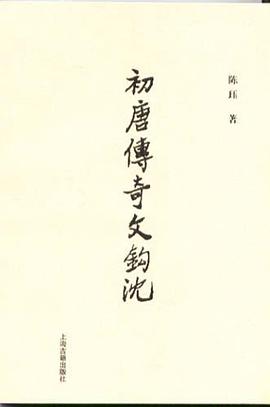 陈珏 著
初唐傳奇文鈎沈
上海古籍出版社